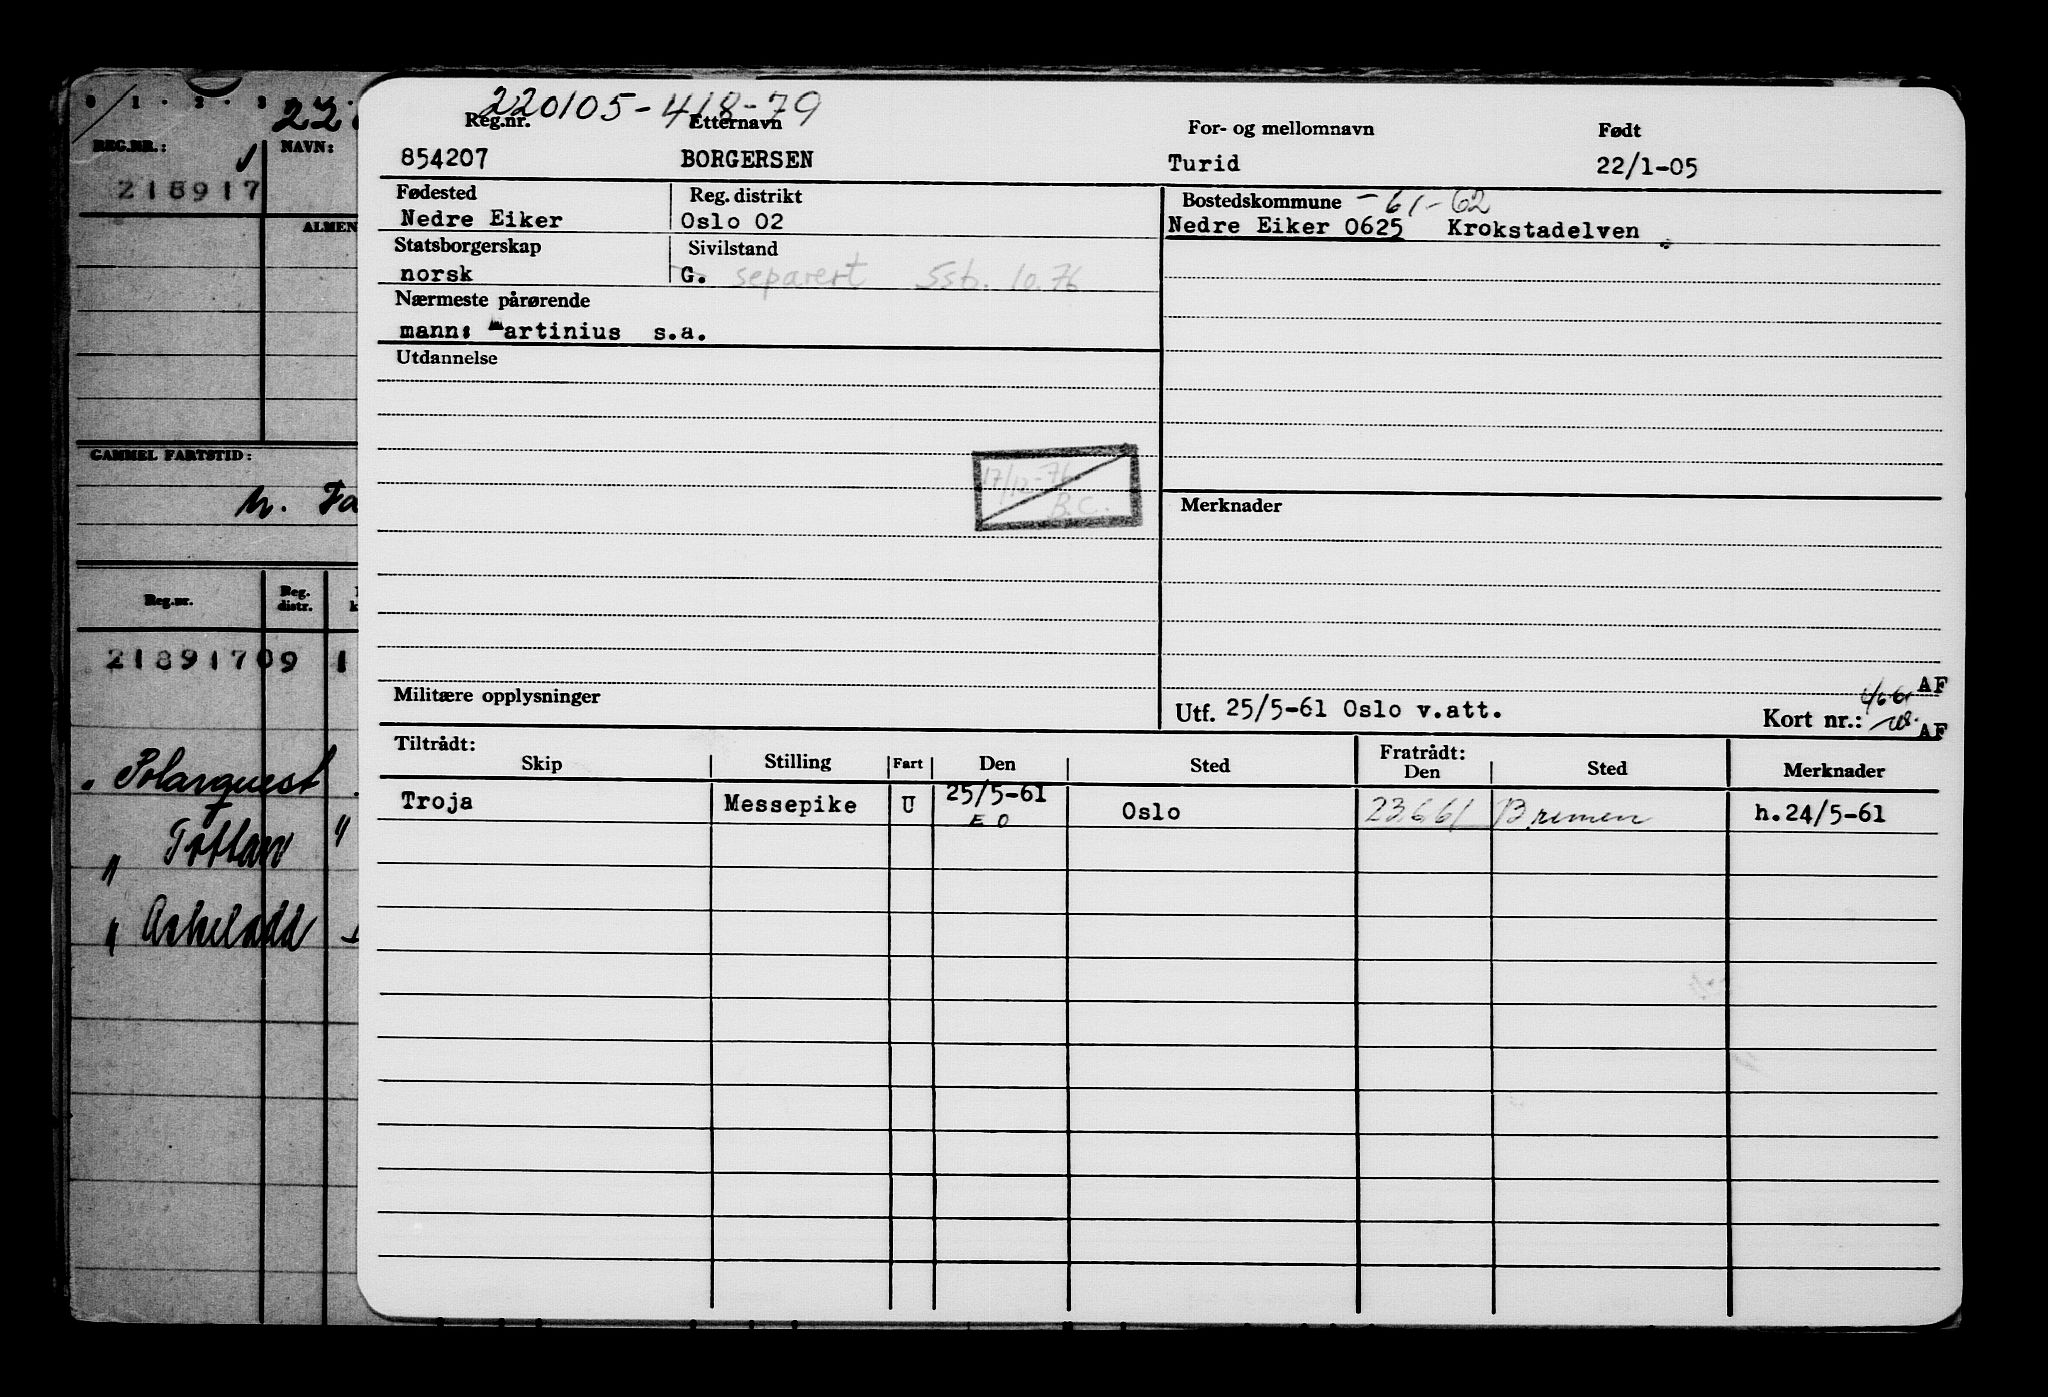 0 1 . 2 . 3 .
22
REG.NR.: NAVN:
218917
ALMEN
GAMMEL FARTSTID:
Reg.nr. Reg. distr.
21891709 1
" Polarquest
" Tottan "
" Askeladd
220105-418-79
Reg.nr. Etternavn For- og mellomnavn Født
854207 BORGERSEN Turid 22/1-05
Fødested Reg. distrikt Bostedskommune -61-62
Nedre Eiker Oslo 02 Nedre Eiker 0625 Krokstadelven
Statsborgerskap Sivilstand
norsk G. separert Ssb. 10.76
Nærmeste pårørende
mann: Martinius s.a.
Utdannelse
17/12-76
B.C.
Merknader
Militære opplysninger
AF
Utf. 25/5-61 Oslo v.att. Kort nr.: AF
Tiltrådt: Fratrådt:
Skip Stilling Fart Den Sted Den Sted Merknader
Troja Messepike U 25/5-61 Oslo 23.6.61 Bremen h.24/5-61
E O